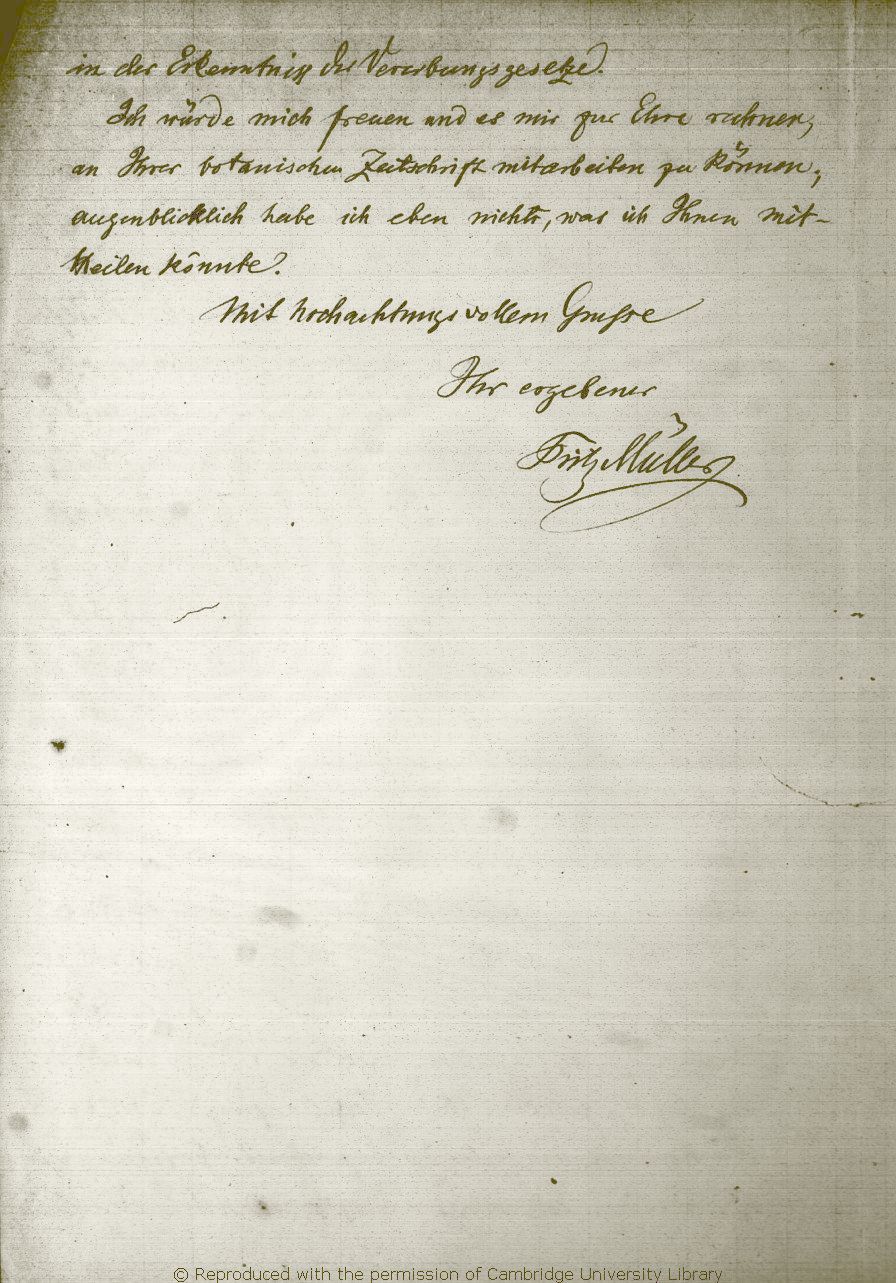 in der Erkenntniss der Vererbungsgesetze.
Ich würde mich freuen und es mir zur Ehre rechnen,
an Ihrer botanischen Zeitschrift mitarbeiten zu können;
augenblicklich habe ich eben nichts, was ich Ihnen mit-
theilen könnte.
Mit hochachtungsvollem Grusse
Ihr ergebener
Fritz Müller
© Reproduced with the permission of Cambridge University Library